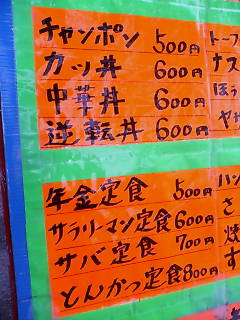 チャンポン 500円
カツ丼 600円
中華丼 600円
逆転丼 600円
年金定食 500円
サラリーマン定食 600円
サバ定食 700円
とんかつ定食 800円
トーフ
ナス
ほう
ヤサ
ハン
さ
焼
す